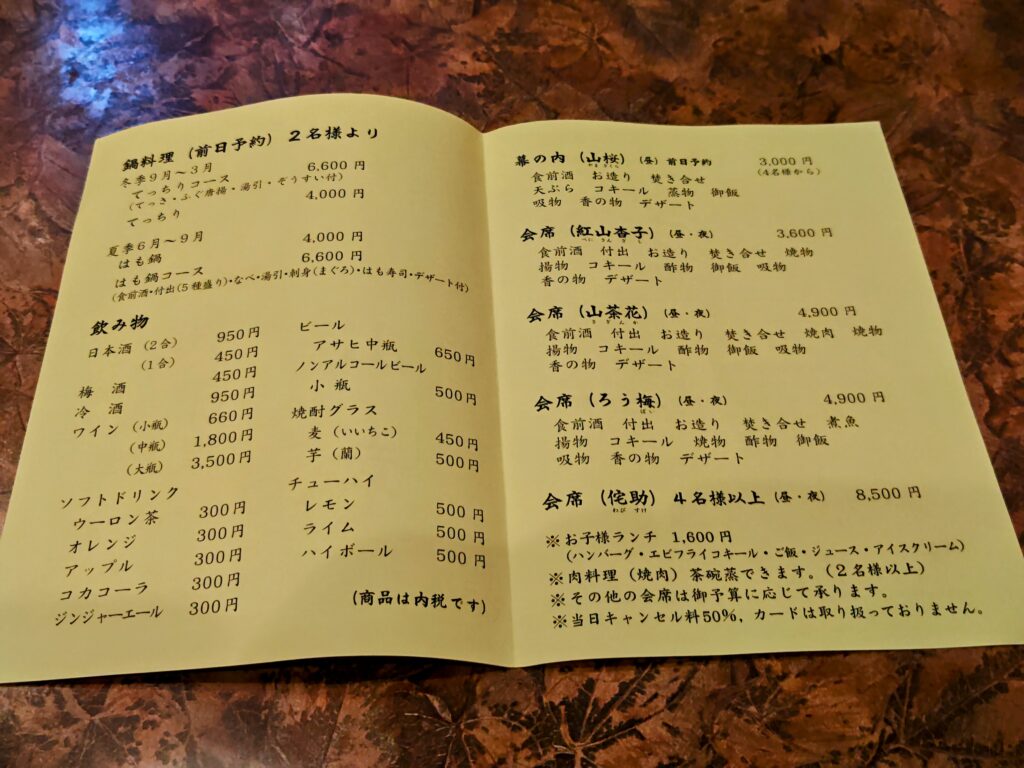 鍋料理（前日予約）２名様より
冬季９月～３月 6,600 円
てっちりコース
（てっさ・ふぐ唐揚・湯引・ぞうすい付）
てっちり 4,000 円
夏季６月～９月
はも鍋 4,000 円
はも鍋コース 6,600 円
（食前酒・付出(５種盛り)・なべ・湯引・刺身(まぐろ)・はも寿司・デザート付）
飲み物
日本酒（2合） 950円
（1合） 450円
梅酒 450円
冷酒 950円
ワイン（小瓶） 660円
（中瓶） 1,800円
（大瓶） 3,500円
ソフトドリンク
ウーロン茶 300円
オレンジ 300円
アップル 300円
コカコーラ 300円
ジンジャーエール 300円
ビール
アサヒ中瓶 650円
ノンアルコールビール
小瓶 500円
焼酎グラス
麦（いいちこ） 450円
芋（蘭） 500円
チューハイ
レモン 500円
ライム 500円
ハイボール 500円
（商品は内税です）
幕の内（山桜）（昼）前日予約 3,000 円
やまざくら
（4名様から）
食前酒 お造り 焚き合せ
天ぷら コキール 蒸物 御飯
吸物 香の物 デザート
会席（紅山杏子）（昼・夜） 3,600 円
食前酒 付出 お造り 焚き合せ 焼物
揚物 コキール 酢物 御飯 吸物
香の物 デザート
会席（山茶花）（昼・夜） 4,900 円
さざんか
食前酒 付出 お造り 焚き合せ 焼肉 焼物
揚物 コキール 酢物 御飯 吸物
香の物 デザート
会席（ろう梅）（昼・夜） 4,900 円
ばい
食前酒 付出 お造り 焚き合せ 煮魚
揚物 コキール 焼物 酢物 御飯
吸物 香の物 デザート
会席（侘助）４名様以上（昼・夜） 8,500 円
わびすけ
※お子様ランチ 1,600円
（ハンバーグ・エビフライコキール・ご飯・ジュース・アイスクリーム）
※肉料理（焼肉）茶碗蒸できます。（２名様以上）
※その他の会席は御予算に応じて承ります。
※当日キャンセル料50%，カードは取り扱っておりません。